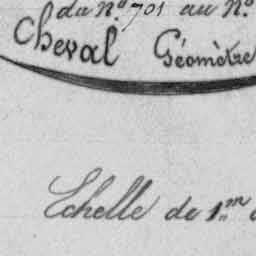 du N.º 701 au N.º
Cheval Géomètre
Echelle de 1.m